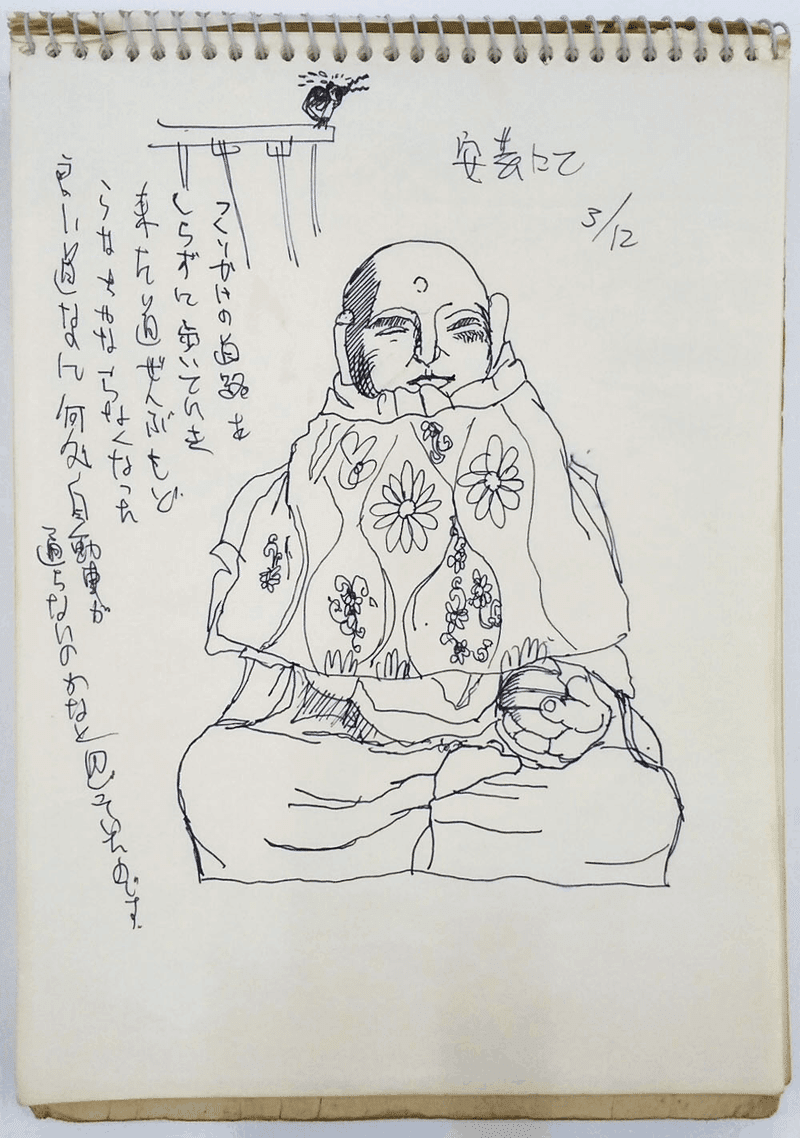 安芸にて
3/12
つくりかけの道路を
しらずに歩いていき
来た道ぜんぶもど
らなきゃならなくなった
良い道なのに何故自動車が
通らないのかなと思っていたのです